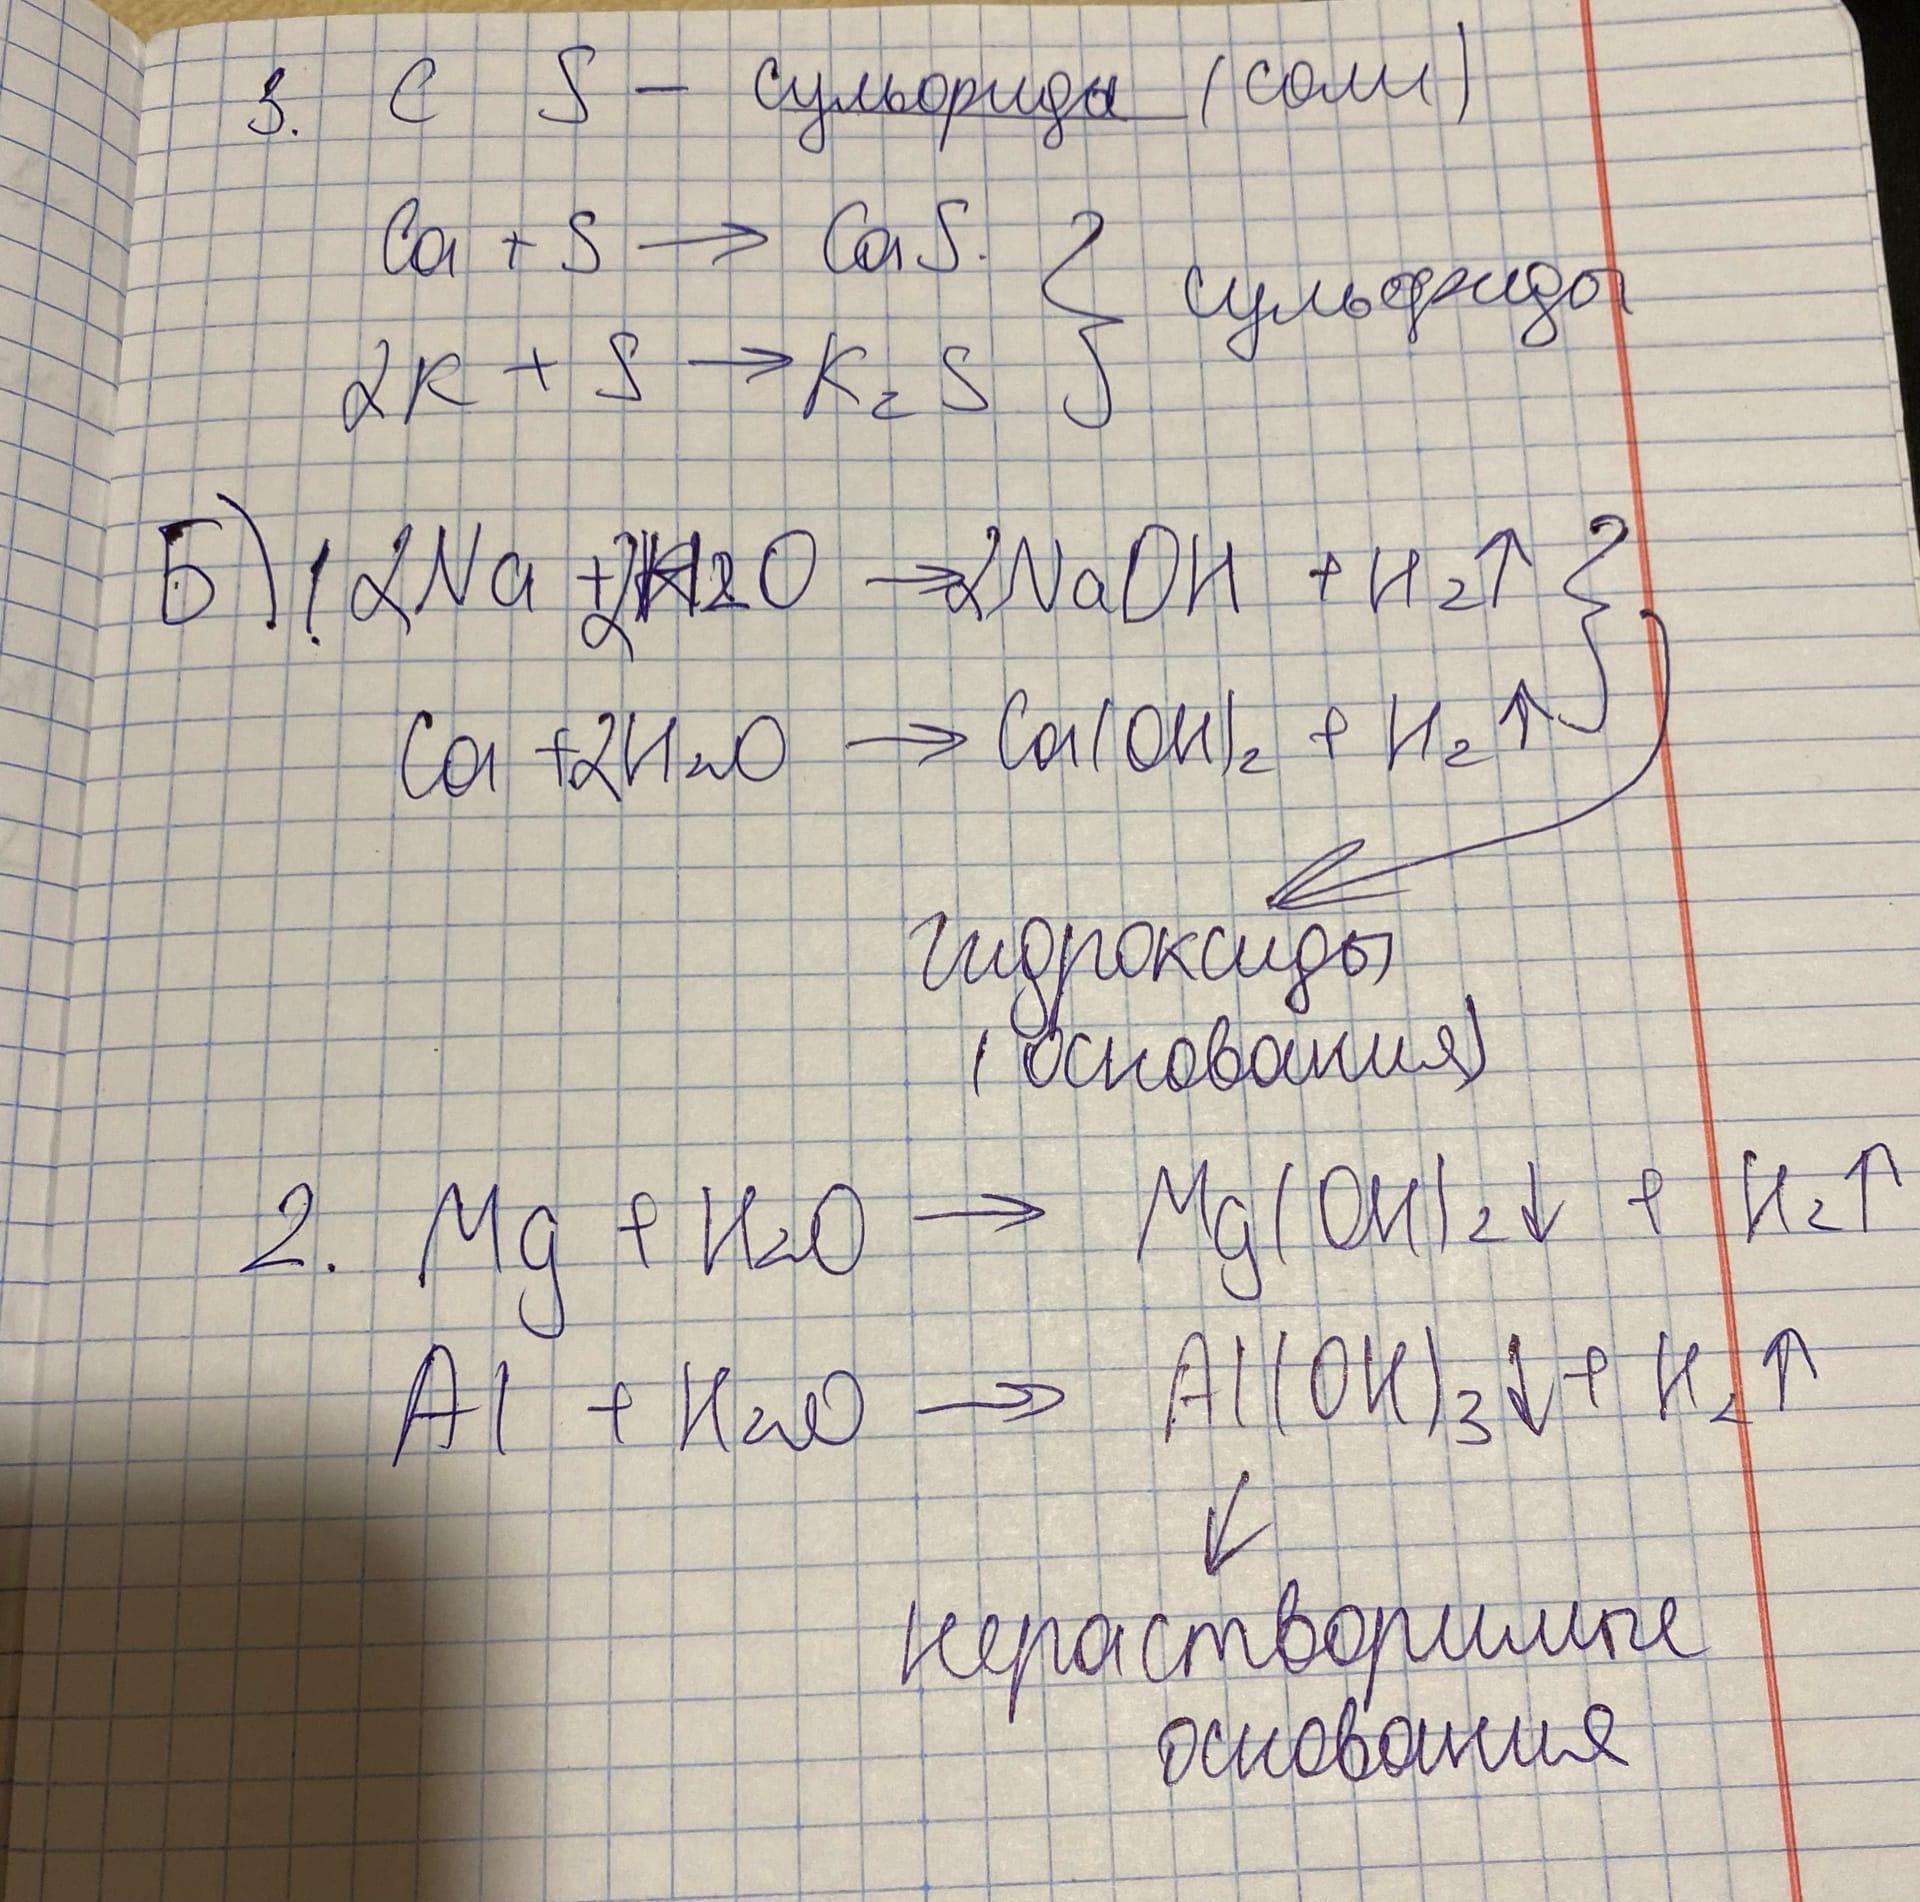 3. С S – сульфиды (соли)
Ca + S → CaS.
2K + S → K₂S
} сульфиды
Б) 1 2Na + 2H2O → 2NaOH + H₂↑ }
Ca + 2H₂O → Ca(OH)₂ + H₂↑
гидроксиды
(основания)
2. Mg + H₂O → Mg(OH)₂↓ + H₂↑
Al + H₂O → Al(OH)₃↓ + H₂↑
↓
нерастворимые
основания